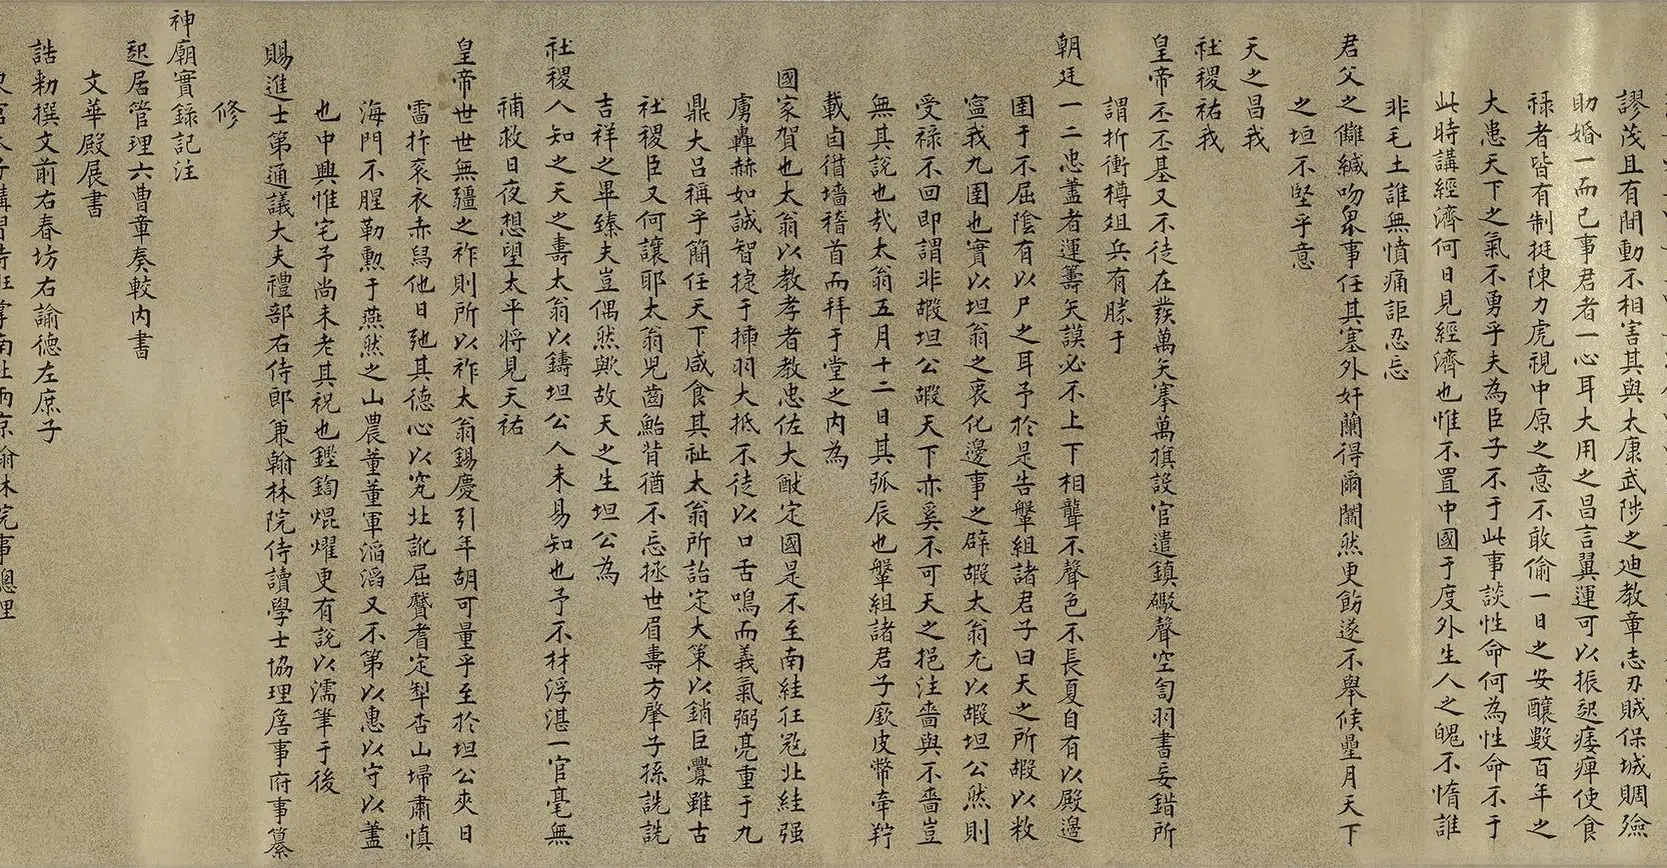 謬茂且有間動不相害其與太康武陟之迪教章志刃賊保城賙殮
助婚一而已事君者一心耳大用之昌言翼運可以振起痿痺使食
祿者皆有制挺陳力虎視中原之意不敢偷一日之安釀數百年之
大患天下之氣不勇乎夫為臣子不于此事談性命何為性命不于
此時講經濟何日見經濟也惟不置中國于度外生人之魄不惰誰
非毛土誰無憤痛詎忍忘
君父之讎緘吻眾事任其塞外奸蘭得爾闕然更飭遂不舉候壘月天下
之垣不堅乎意
天之昌我
社稷祐我
皇帝丕丕基又不徒在發萬夫搴萬旗設官遣鎮礮聲空訇羽書妄錯所
謂折衝樽俎兵有勝于
朝廷一二忠藎者運籌矢謨必不上下相聾不聲色不長夏自有以殿邊
圉于不屈陰有以尸之耳予於是告鞶組諸君子曰天之所嘏以敉
寧我九圉也實以坦翁之衷化邊事之辟嘏太翁尤以嘏坦公然則
受祿不回即謂非嘏坦公嘏天下亦奚不可天之挹注嗇與不嗇豈
無其說也哉太翁五月十二日其弧辰也鞶組諸君子歐皮幣牽羜
載卣借墻稽首而拜于堂之內為
國家賀也太翁以教孝者教忠佐大猷定國是不至南絓狂寇北絓强
虜轟赫如誠智捷于揷羽大抵不徒以口舌鳴而義氣弼亮重于九
鼎大呂稱乎簡任天下咸食其祉太翁所詒定大策以銷巨釁雖古
社稷臣又何讓耶太翁兒齒鮐背猶不忘拯世眉壽方肇子孫詵詵
吉祥之畢臻夫豈偶然歟故天之生坦公為
社稷人知之天之壽太翁以鑄坦公人未易知也予不材浮湛一官毫無
補救日夜想望太平將見天祐
皇帝世世無疆之祚則所以祚太翁錫慶引年胡可量乎至於坦公夾日
雷拃衮衣赤舄他日弛其德心以究北訛屈贒耆定犁杏山埽肅慎
海門不腥勒勲于燕然之山農董董軍滔滔又不第以惠以守以蓋
也中興惟宅予尚未老其祝也鏗鍧焜燿更有說以濡筆于後
賜進士第通議大夫禮部右侍郎兼翰林院侍讀學士協理詹事府事纂
修
神廟實錄記注
起居管理六曹章奏較內書
文華殿展書
誥勑撰文前右春坊右諭德左庶子